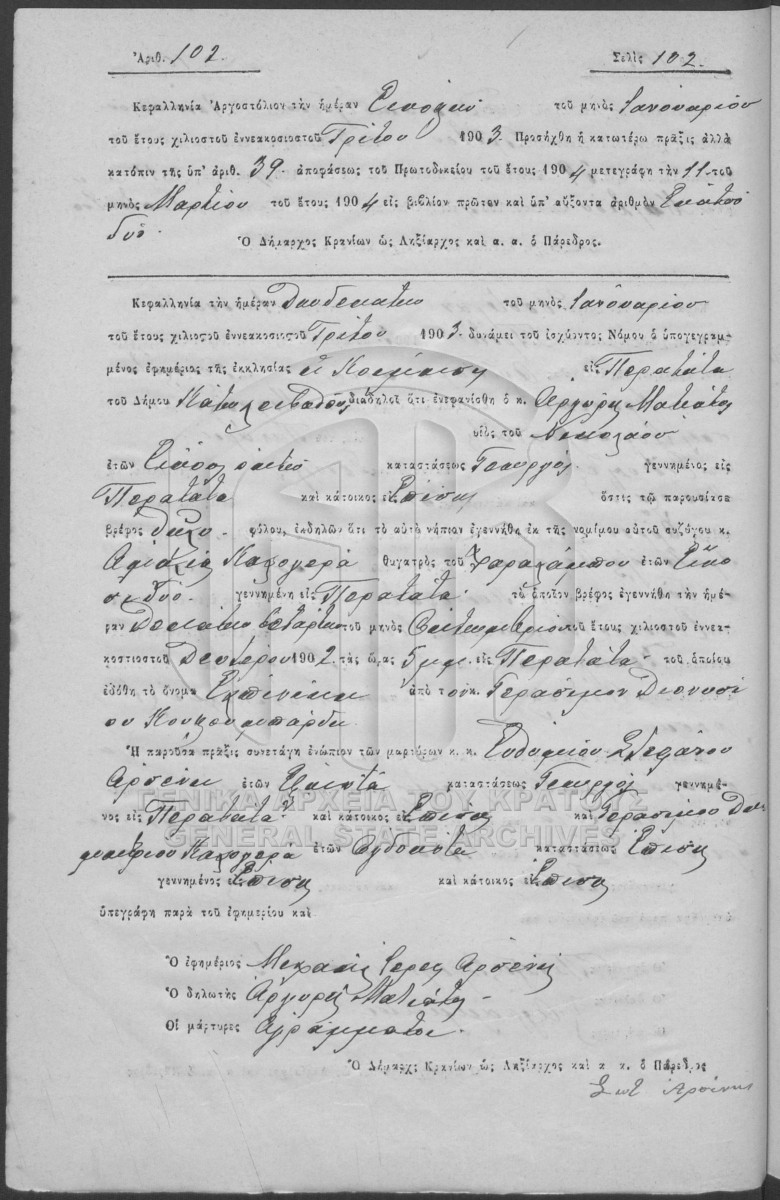 Ἀριθ. 102. Σελὶς 102.
Κεφαλληνία Ἀργοστόλιον τὴν ἡμέραν τοῦ μηνὸς Ἰανουαρίου
τοῦ ἔτους χιλιοστοῦ ἐννεακοσιοστοῦ Τρίτου 1903. Προσήχθη ἡ κατωτέρω πρᾶξις ἀλλὰ
κατόπιν τῆς ὑπ' ἀριθ. 39. ἀποφάσεως τοῦ Πρωτοδικείου τοῦ ἔτους 1904 μετεγράφη τὴν 11. τοῦ
μηνὸς Μαρτίου τοῦ ἔτους 1904 εἰς βιβλίον πρῶτον καὶ ὑπ' αὔξοντα ἀριθμὸν Ἑκατὸ
δυο.
Ὁ Δήμαρχος Κρανίων ὡς Ληξίαρχος καὶ α. α. ὁ Πάρεδρος.
Κεφαλληνία τὴν ἡμέραν Δωδεκάτην τοῦ μηνὸς Ἰανουαρίου
τοῦ ἔτους χιλιοστοῦ ἐννεακοσιοστοῦ Τρίτου 1903. δυνάμει τοῦ ἰσχύοντος Νόμου ὁ ὑπογεγραμ-
μένος ἐφημέριος τῆς ἐκκλησίας ἡ Κοίμησις εἰς Περατάτα
τοῦ Δήμου διαδηλοῖ ὅτι ἐνεφανίσθη ὁ κ. Ἀργύρης Ματιάτος
υἱὸς τοῦ Νικολάου
ἐτῶν Εἰκοσι ὀκτὼ καταστάσεως Γεωργὸς γεννημένος εἰς
Περατάτα καὶ κάτοικος εἰς Ἐπίσης ὅστις τῷ παρουσίασε
βρέφος θῆλυ. φύλου, ἐκδηλῶν ὅτι τὸ αὐτὸ νήπιον ἐγεννήθη ἐκ τῆς νομίμου αὐτοῦ συζύγου κ.
Καλογερᾶ θυγατρὸς τοῦ Χαραλάμπου ἐτῶν Εἴκο
σι δυο. γεννημένη εἰς Περατάτα. τὸ ὁποῖον βρέφος ἐγεννήθη τὴν ἡμέ-
ραν Δεκάτην τετάρτην τοῦ μηνὸς τοῦ ἔτους χιλιοστοῦ ἐννεα-
κοστιοστοῦ Δευτέρου 1902. τὰς ὥρας 5 μ.μ. εἰς Περατάτα. τοῦ ὁποίου
ἐδόθη τὸ ὄνομα Ἐλπινίκη ἀπὸ τὸν κ. Γεράσιμον Διονυσί
ου
Ἡ παροῦσα πρᾶξις συνετάγη ἐνώπιον τῶν μαρτύρων κ. κ. Εὐθυμίου Στεφάνου
Ἀρσένη ἐτῶν Ἑξῆντα καταστάσεως Γεωργὸς γεννημέ-
νος εἰς Περατάτα καὶ κάτοικος εἰς Ἐπίσης καὶ Γεράσιμου
Καλογερᾶ ἐτῶν Ὀγδοῆντα καταστάσεως Ἐπίσης
γεννημένος εἰς Ἐπίσης καὶ κάτοικος εἰς Ἐπίσης
ὑπεγράφη παρὰ τοῦ ἐφημερίου καὶ
Ὁ ἐφημέριος Μιχαὴλ Ἱερεὺς Ἀρσένης
Ὁ δηλωτὴς Ἀργύρης Ματιάτος
Οἱ μάρτυρες Ἀγράμματοι.
Ὁ Δήμαρχς Κρανίων ὡς Ληξίαρχος καὶ κ κ. ὁ Πάρεδρος
Ἀρσένης
ΓΕΝΙΚΑ ΑΡΧΕΙΑ ΤΟΥ ΚΡΑΤΟΥΣ
GENERAL STATE ARCHIVES